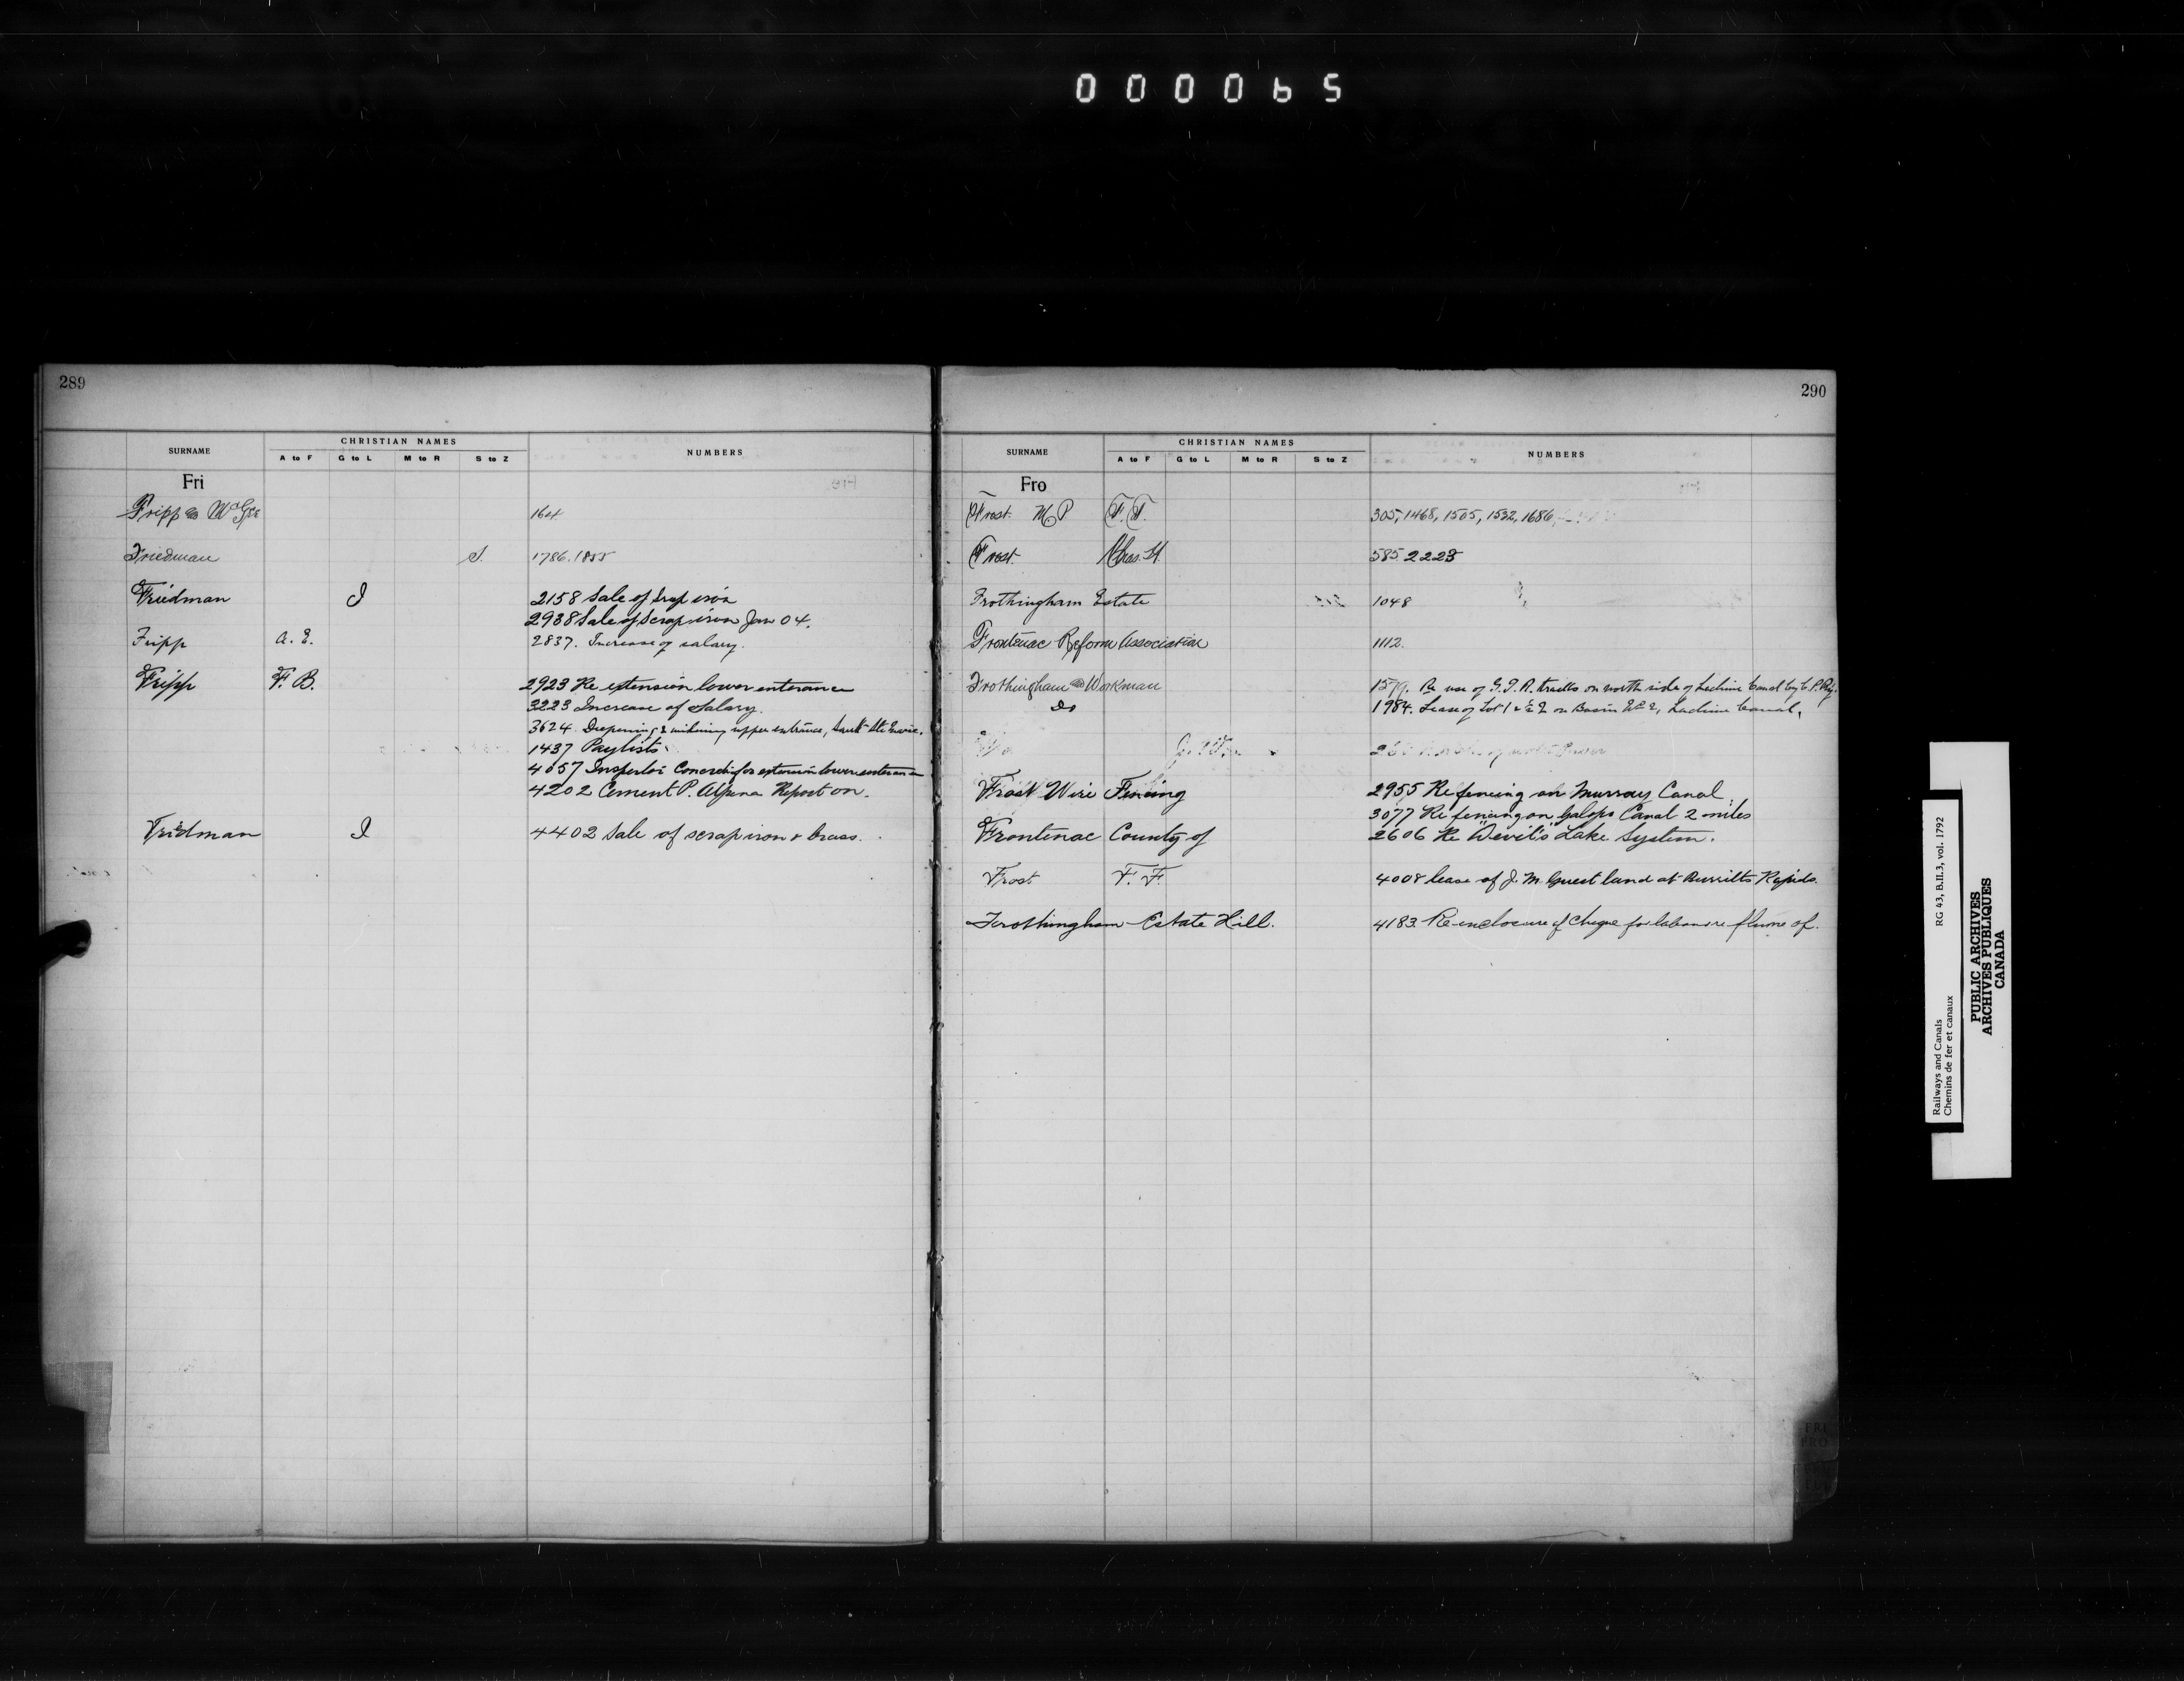 000065
289
SURNAME
CHRISTIAN NAMES
A to F G to L M to R S to Z
NUMBERS
Fri
Fripp & McGee 164
Friedman S. 1786. 1855
Friedman I 2158 Sale of scrap iron
2938 Sale of scrap iron Jan 04.
Fripp A. E. 2837. Increase of salary.
Fripp F. B. 2923 Re extension lower enterance
3223 Increase of Salary.
3624 Deepening & widening upper entrance, Sault Ste
1437 Paylists
4057 Inspector Concrete for extension lower enterance
4202 Cement P. Alpena Report on.
Fridman I 4402 Sale of scrap iron & brass.
290
SURNAME
CHRISTIAN NAMES
A to F G to L M to R S to Z
NUMBERS
Fro
Frost M P F. T. 305, 1468, 1505, 1532, 1686
Frost Chas. H. 585 2223
Frothingham Estate 1048
Frontenac Reform Association 1112.
Frothingham & Workman 1579. Re use of G.T.R. tracks on north side of Lachine Canal by C.P.Ry.
Do 1984. Lease of Lot 1 & 2 on Basin No 2, Lachine Canal.
Frost Wire Fencing 2955 Re fencing on Murray Canal
3077 Re fencing on Galops Canal 2 miles
Frontenac County of 2606 Re "Devil's" Lake System.
Frost F. F. 4008 lease of J. M. Guest land at Burritts Rapids.
Frothingham Estate Hill. 4183. Re enclosure of cheque for labour re flume of.
FRI
FRO
Railways and Canals RG 43, B.II.3, vol. 1792
Chemins de fer et canaux
PUBLIC ARCHIVES
ARCHIVES PUBLIQUES
CANADA